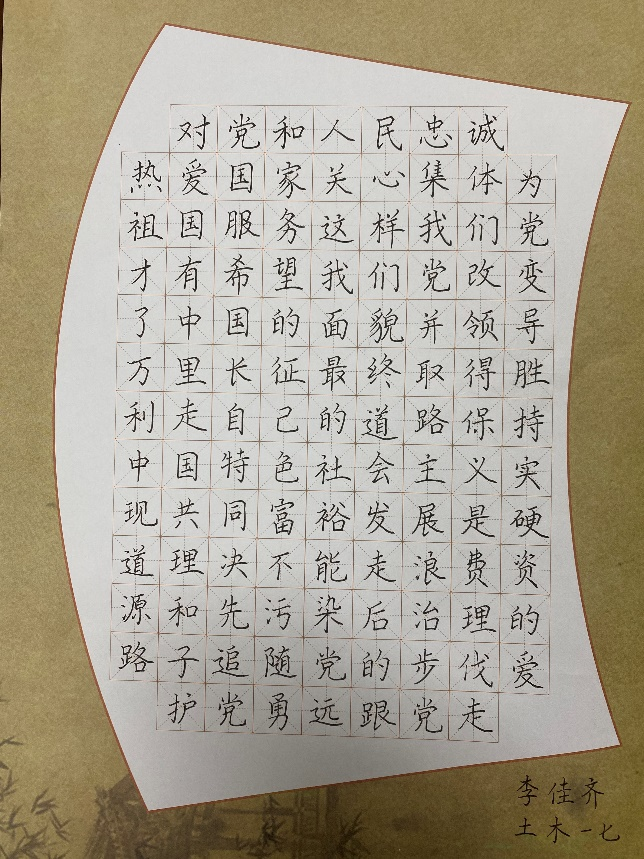 对党和人民忠诚
热爱国家关心集体为
祖国服务这样我们党
才有希望我们党改变
了中国的面貌并领导
万里长征最终取得胜
利走自己的道路保持
中国特色社会主义实
现共同富裕发展是硬
道理决不能走浪费资
源和先污染后治理的
路子追随党的步伐爱
护党勇远跟党走
李佳齐
土木一七